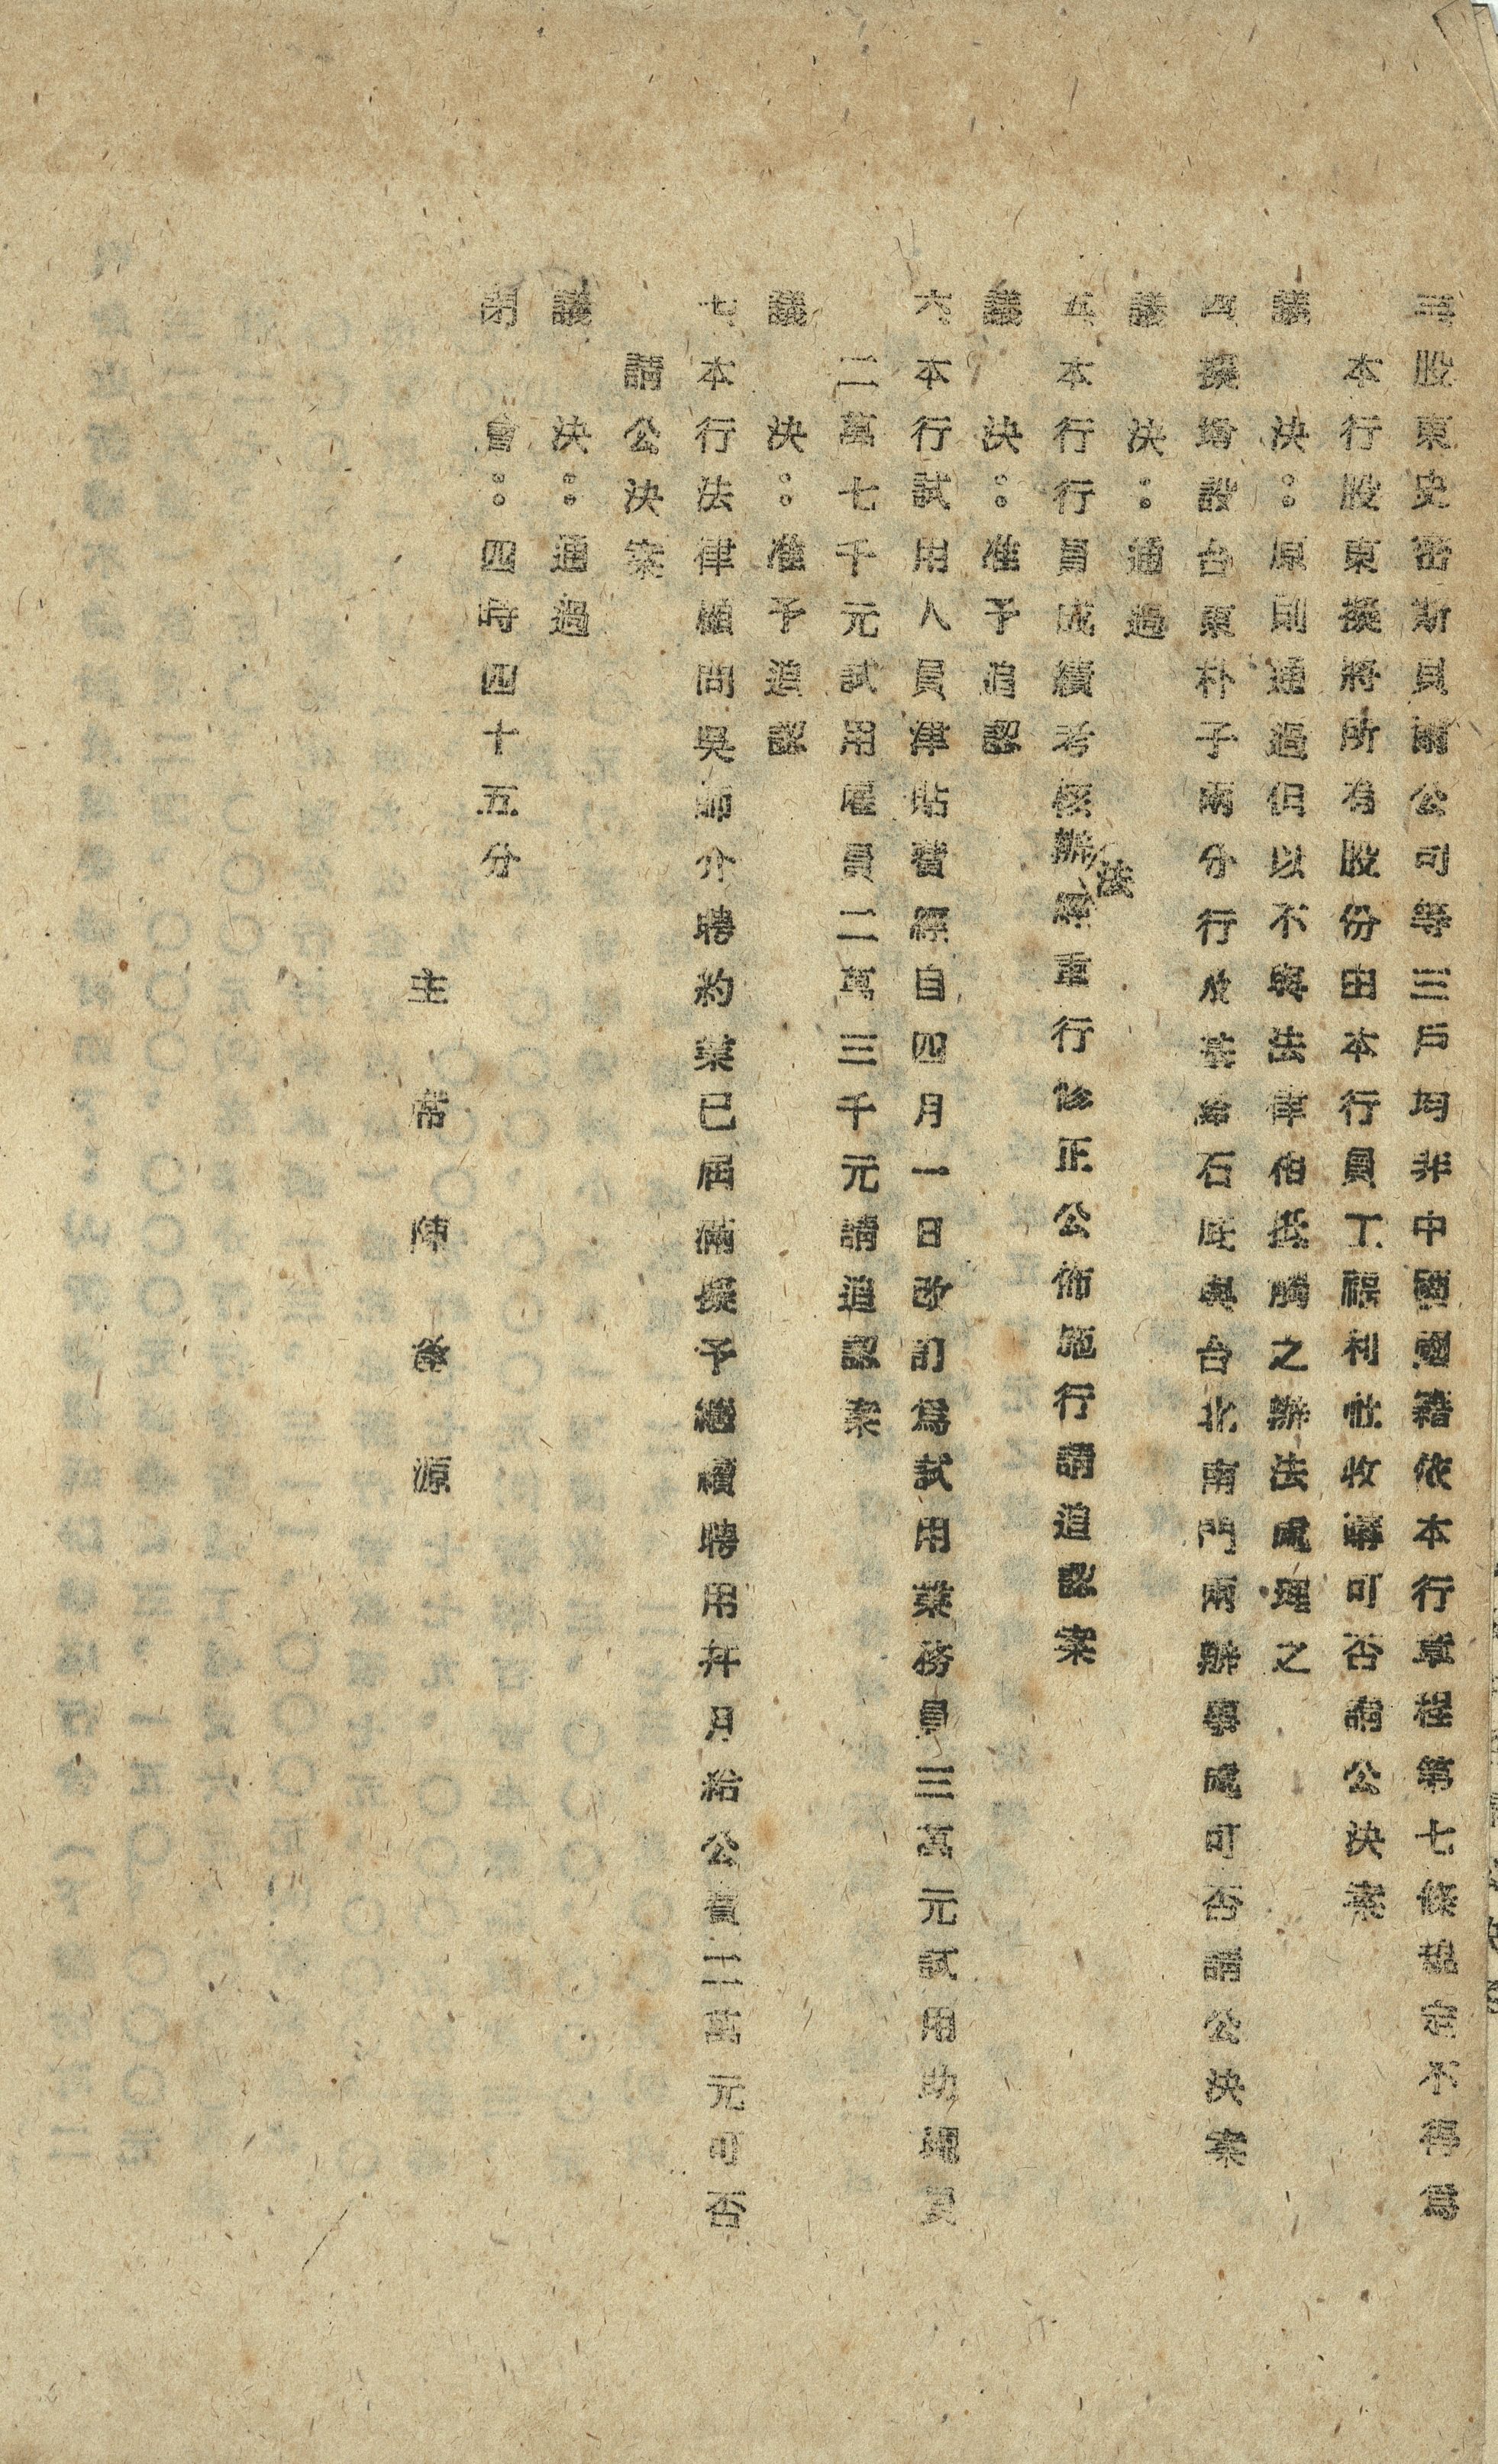 三、股東史密斯貝爾公司等三戶均非中國國籍依本行章程第七條規定不得爲
本行股東擬將所有股份由本行員工福利社收購可否請公決案
議決：原則通過但以不與法律相抵觸之辦法處理之
四、擬增設台東朴子兩分行及基給石底與台北南門兩辦事處可否請公決案
議決：通過
五、本行行員成績考核辦法經重行修正公佈施行請追認案
議決：准予追認
六、本行試用人員津貼費經自四月一日改訂爲試用業務員三萬元試用助理員
二萬七千元試用雇員二萬三千元請追認案
議決：准予追認
七、本行法律顧問吳師介聘約業已屆滿擬予繼續聘用幷月給公費二萬元可否
請公決案
議決：通過
閉會：四時四十五分
主席陳 源